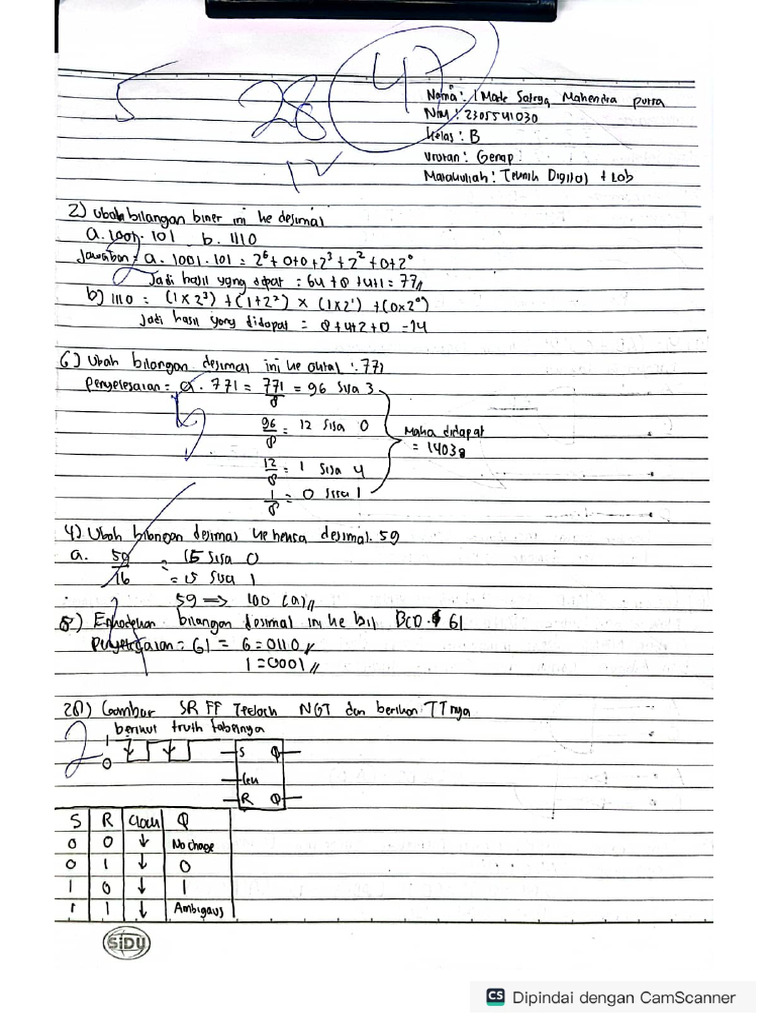 5 28 47
12
Nama: I Made Satrya Mahendra Putra
Nim: 2305541030
Kelas: B
Urutan: Genap
Matakuliah: Teknik Digital + Lab
2) Ubah bilangan biner ini ke desimal
a. 1001.101 b. 1110
Jawaban: a. 1001.101 = 2⁶ + 0 + 0 + 2³ + 2² + 0 + 2⁰
Jadi hasil yang dapat = 64 + 8 + 4 + 1 = 77//
b) 1110 = (1 x 2³) + (1 + 2²) x (1x2¹) + (0x2⁰)
Jadi hasil yang didapat = 8 + 4 + 2 + 0 = 14
6) Ubah bilangan desimal ini ke oktal : 771
Penyelesaian = a. 771 = 771/8 = 96 sisa 3
96/8 = 12 sisa 0
12/8 = 1 sisa 4
1/8 = 0 sisa 1
Maka didapat
= 1403₈
4) Ubah bilangan desimal ke heksa desimal. 59
a. 59/16 = 15 sisa 0
= 15 sisa 1
59 => 100 (a)//
8) Enkodekan bilangan desimal ini ke bil BCD. 61
Penyelesaian = 61 = 6 = 0110//
1 = 0001//
20) Gambar SR FF NGT dan berikan TTnya
2 berikut truth tabelnya
1
0
S Q
Clk
R Q
S R Clock Q
0 0 ↓ No chage
0 1 ↓ 0
1 0 ↓ 1
1 1 ↓ Ambigaus
SiDU
CS Dipindai dengan CamScanner